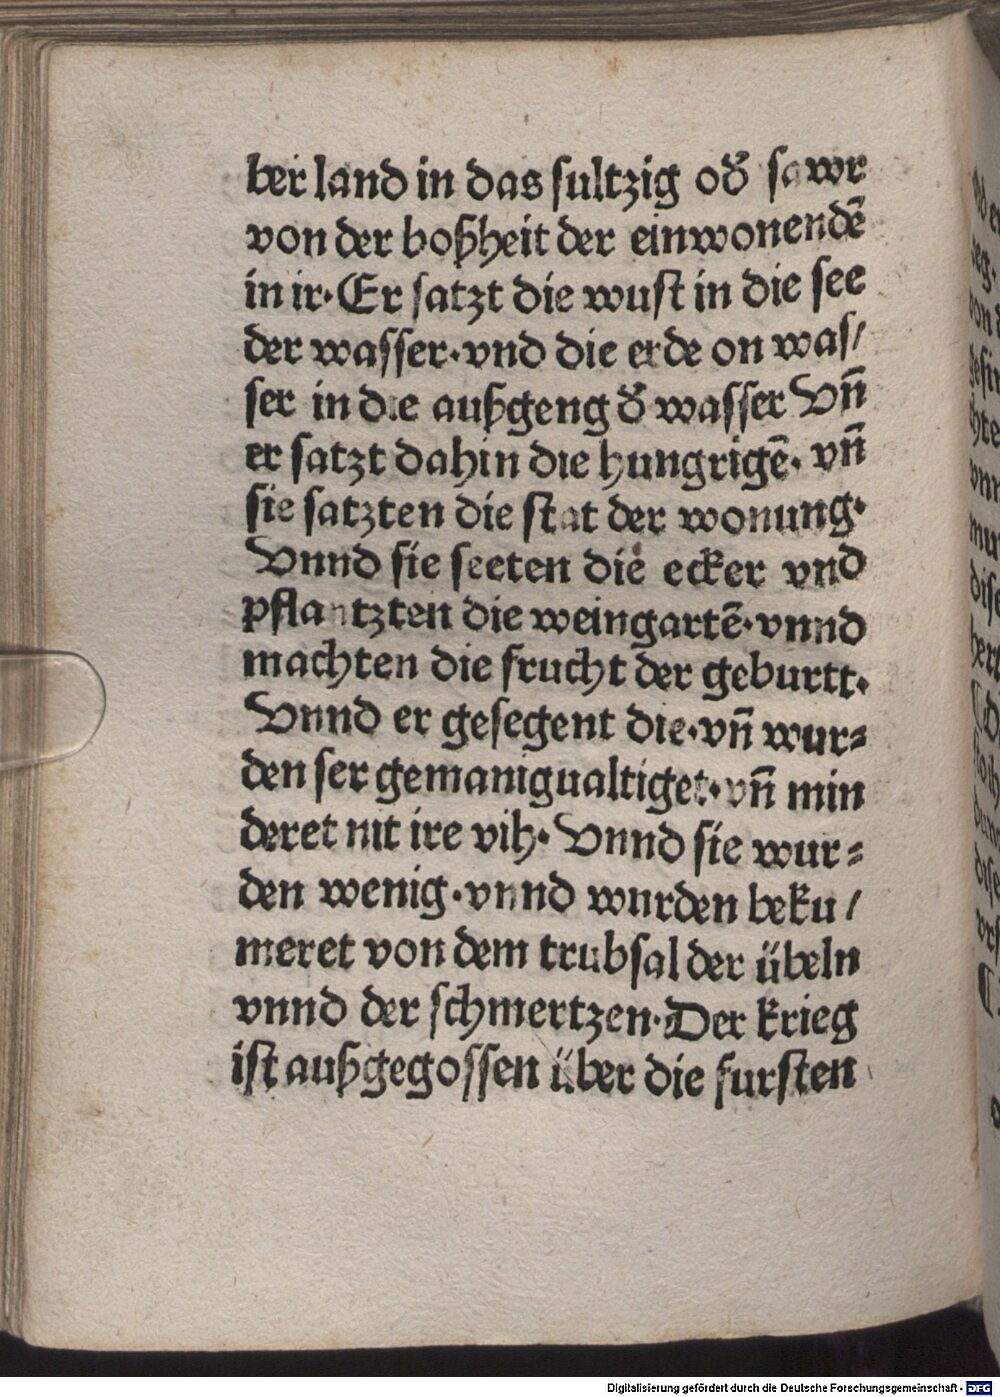 ber land in das sultzig od̕ sawr
von der boßheit der einwonendē
in ir· Er satzt die wust in die see
der wasser·vnd die erde on was/
ser in die außgeng d̕ wasser Vn̄
er satzt dahin die hungrigē· vn̄
sie satzten die stat der wonung·
Vnnd sie seeten die ecker vnd
pflantzten die weingartē·vnnd
machten die frucht der geburtt·
Vnnd er gesegent die·vn̄ wur⸗
den ser gemanigualtiget·vn̄ min
deret nit ire vih· Vnnd sie wur⸗
den wenig·vnnd wurden beku/
meret von dem trubsal der übeln
vnnd der schmertzen·Der krieg
ist außgegossen über die fursten
Digitalisierung gefördert durch die Deutsche Forschungsgemeinschaft - DFG